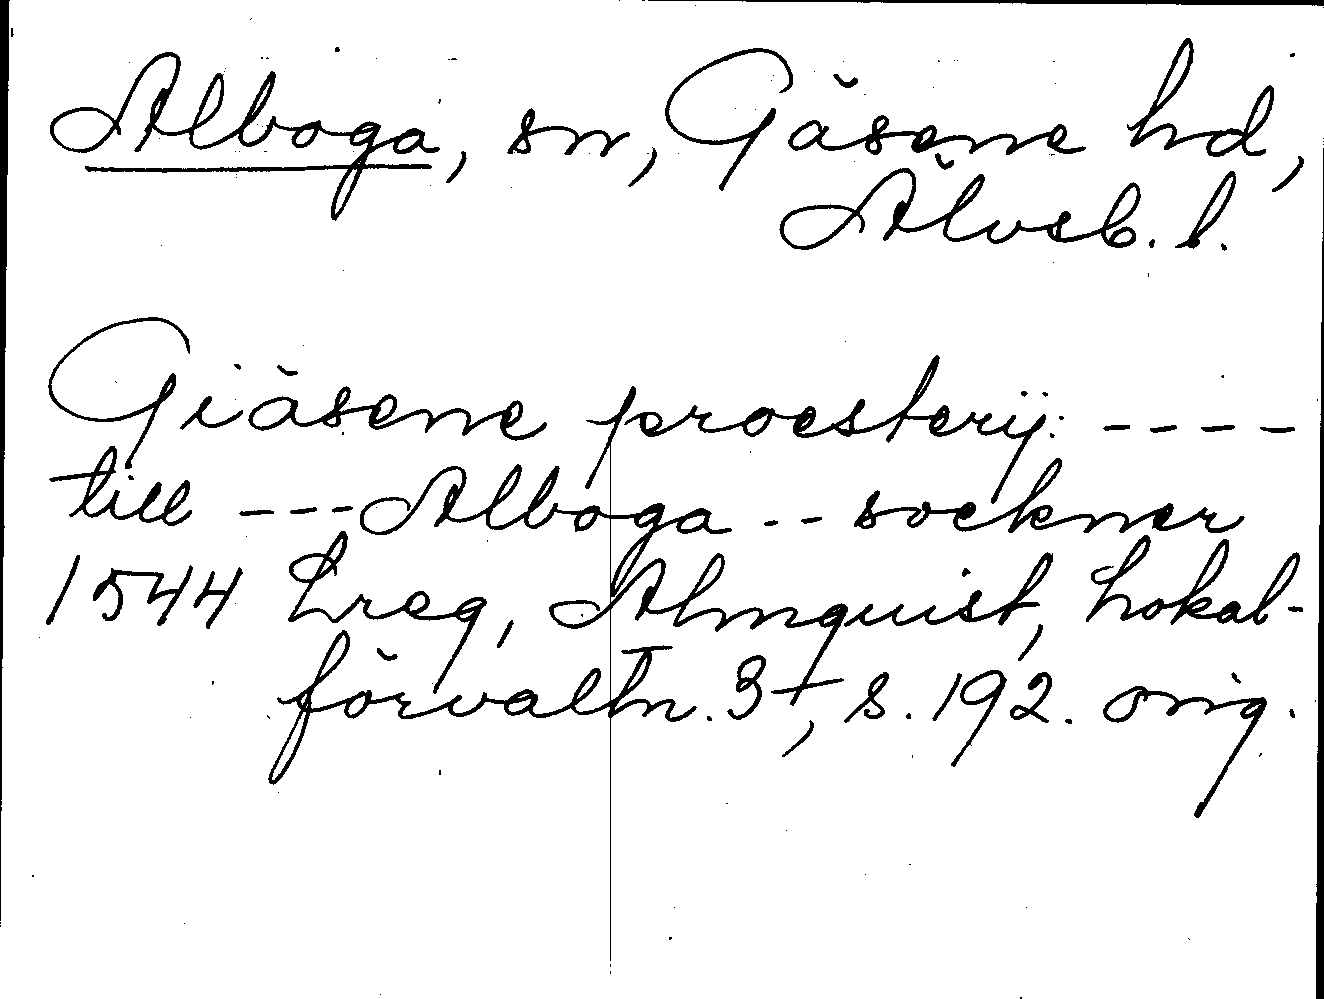 Alboga, sn, Gäsene hd,
Älvsb. l.
Giäsene proesterij: ----
till --- Alboga -- sockner
1544 Lreg, Almquist, Lokal-
förvaltn. 3+, s. 192. orig.